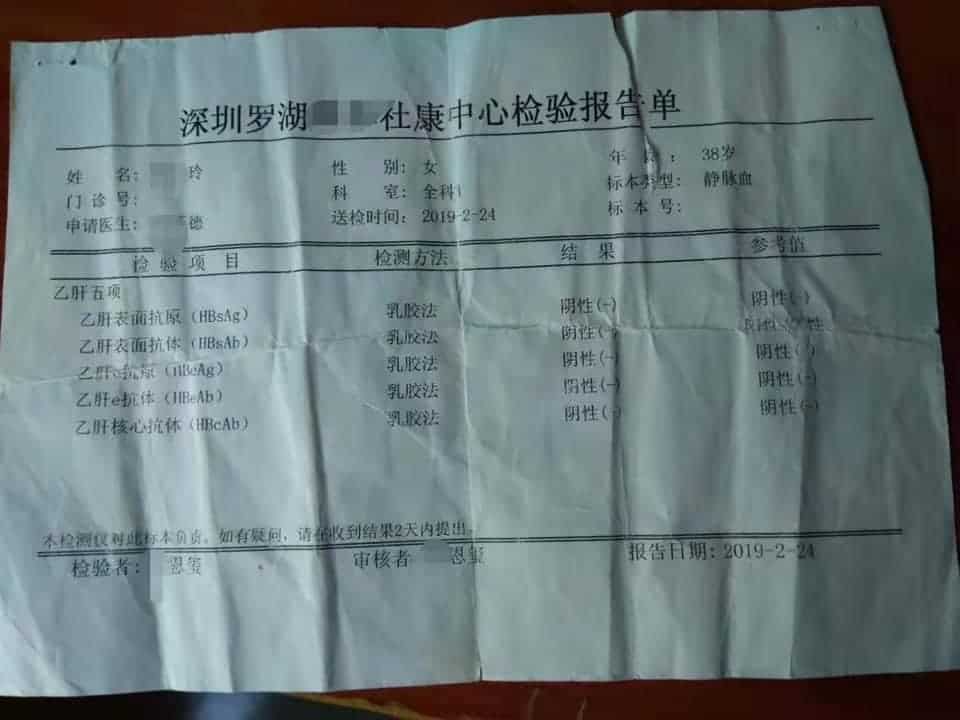 深圳罗湖 社康中心检验报告单
姓 名: 玲 性 别: 女 年 : 38岁
门诊号: 科 室: 全科 标本类型: 静脉血
申请医生: 德 送检时间: 2019-2-24 标 本 号:
检 验 项 目 检测方法 结 果 参考值
乙肝五项
乙肝表面抗原(HBsAg) 乳胶法 阴性(-) 阴性(-)
乙肝表面抗体(HBsAb) 乳胶法 阴性(-) 性
乙肝 抗原( ) 乳胶法 阴性(-) 阴性(-)
乙肝e抗体(HBeAb) 乳胶法 阴性(-) 阴性(-)
乙肝核心抗体(HBcAb) 乳胶法 阴性(-) 阴性(-)
本检测仅对此标本负责。如有疑问,请在收到结果2天内提出。
检验者: 恩玺 审核者 恩玺 报告日期: 2019-2-24